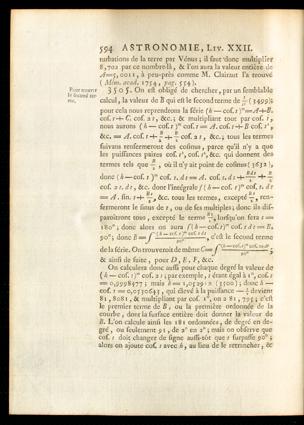 594 ASTRONOMIE, LIV. XXII.
turbations de la terre par Vénus; il faut donc multiplier
8,702 par ce nombre-là, & l'on aura la valeur entière de
A=5,0011, à peu-près comme M. Clairaut l'a trouvé
(Mém. acad. 1754, pag. 554).
Pour trouver
le second ter-
me.
3505. On est obligé de chercher, par un semblable
calcul, la valeur de B qui est le second terme de
pour cela nous reprendrons la série (h — cos. t)ᵐ = A + B.
cos. t + C. cos. 2t, &c.; & multipliant tout par cos. t,
nous aurons (h — cos. t)ᵐ cos. t = A. cos. t + B cos. t²,
&c. = A. cos. t + B/2 + B/2 cos. 2t, &c., tous les termes
suivans renfermeront des cosinus, parce qu'il n'y a que
les puissances paires cos. t², cos. t⁴, &c. qui donnent des
termes tels que B/2, où il n'y ait point de cosinus (3632),
donc (h — cos. t)ᵐ cos. t. dt = A. cos. t. dt + Bdt/2 + B/2
cos. 2t. dt, &c. donc l'intégrale ∫(h — cos. t)ᵐ cos. t. dt
= A. sin. t + Bt/2, &c. tous les termes, excepté Bt/2, ren-
fermeront le sinus de t, ou de ses multiples; donc ils dis-
paroîtront tous, excepté le terme Bt/2, lorsqu'on fera t =
180°; donc alors on aura ∫(h — cos. t)ᵐ cos. t dt = B.
90°; donc B = ∫(h — cos. t)ᵐ cos. t dt/90°, c'est le second terme
de la série. On trouveroit de même C =
& ainsi de suite, pour D, E, F, &c.
On calculera donc aussi pour chaque degré la valeur de
(h — cos. t)ᵐ cos. 2t; par exemple, t étant égal à 1°, cos. t
= 0,9998477; mais h = (3500); donc h —
cos. t = 0,0530643, qui élevé à la puissance — devient
81,8081, & multipliant par cos. 1°, on a 81,795; c'est
le premier terme de B, ou la première ordonnée de la
courbe, dont la surface entière doit donner la valeur de
B. L'on calcule ainsi les 181 ordonnées, de degré en de-
gré, ou seulement 91, de 2° en 2°; mais on observe que
cos. t doit changer de signe aussi-tôt que t surpasse 90°;
alors on ajoute cos. t avec h, au lieu de le retrancher, &